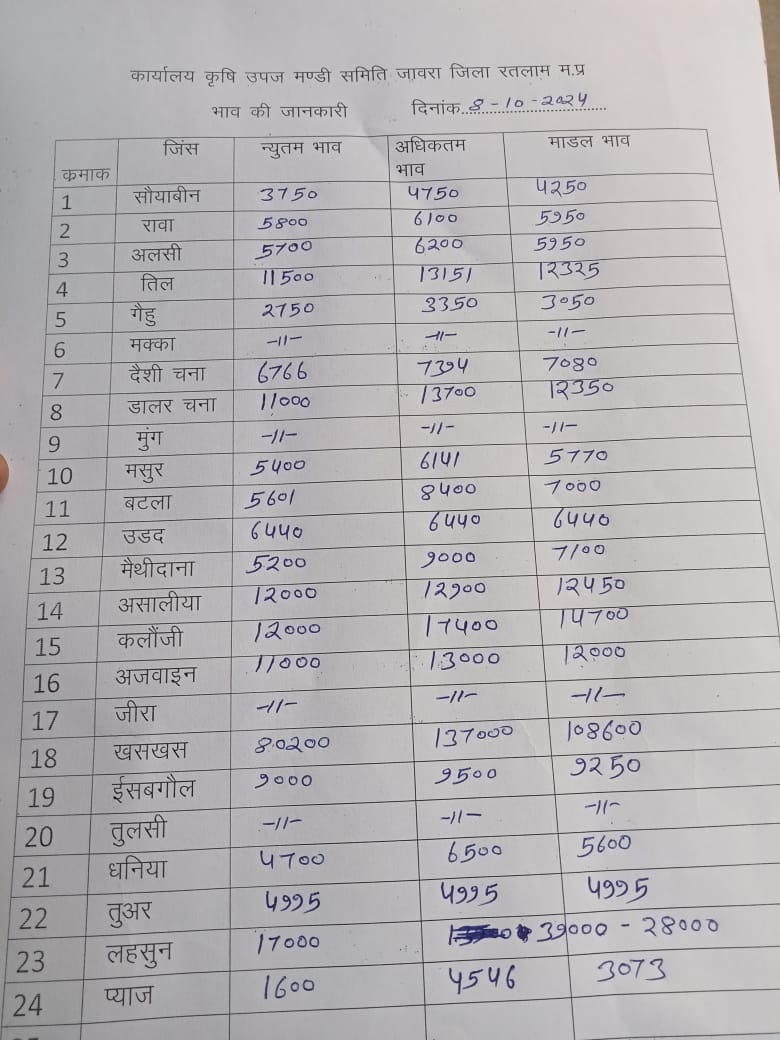 कार्यालय कृषि उपज मण्डी समिति जावरा जिला रतलाम म.प्र
भाव की जानकारी दिनांक..8-10-2024
कमाक जिंस न्युतम भाव अधिकतम भाव माडल भाव
1 सौयाबीन 3750 4750 4250
2 रावा 5800 6100 5950
3 अलसी 5700 6200 5950
4 तिल 11500 13151 12325
5 गैहु 2750 3350 3050
6 मक्का -11- -11- -11-
7 दैशी चना 6766 7394 7080
8 डालर चना 11000 13700 12350
9 मुंग -11- -11- -11-
10 मसुर 5400 6141 5770
11 बटला 5601 8400 7000
12 उडद 6440 6440 6440
13 मैथीदाना 5200 9000 7100
14 असालीया 12000 12900 12450
15 कलौंजी 12000 17400 14700
16 अजवाइन 11000 13000 12000
17 जीरा -11- -11- -11-
18 खसखस 80200 137000 108600
19 ईसबगौल 9000 9500 9250
20 तुलसी -11- -11- -11-
21 धनिया 4700 6500 5600
22 तुअर 4995 4995 4995
23 लहसुन 17000 39000 - 28000
24 प्याज 1600 4546 3073